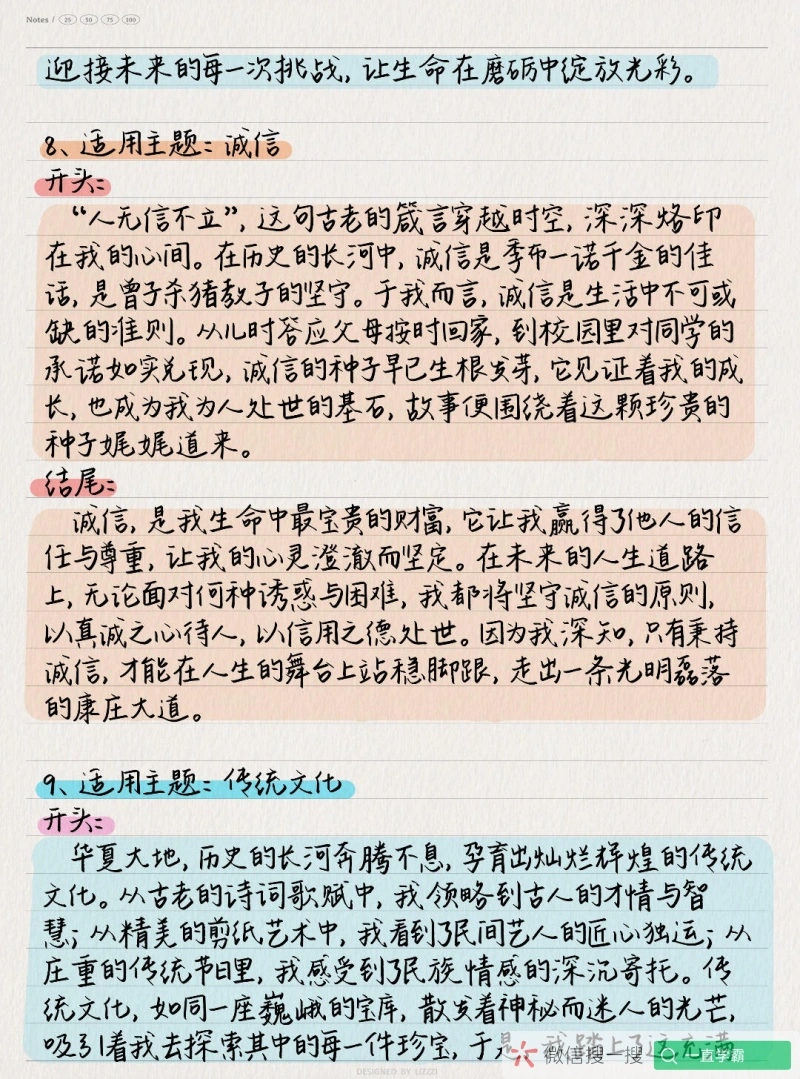 Notes / 25 50 75 100
迎接未来的每一次挑战，让生命在磨砺中绽放光彩。
8、适用主题：诚信
开头：
“人无信不立”，这句古老的箴言穿越时空，深深烙印
在我的心间。在历史的长河中，诚信是季布一诺千金的佳
话，是曾子杀猪教子的坚守。于我而言，诚信是生活中不可或
缺的准则。从儿时答应父母按时回家，到校园里对同学的
承诺如实兑现，诚信的种子早已生根发芽，它见证着我的成
长，也成为我为人处世的基石，故事便围绕着这颗珍贵的
种子娓娓道来。
结尾：
诚信，是我生命中最宝贵的财富，它让我赢得了他人的信
任与尊重，让我的心灵澄澈而坚定。在未来的人生道路
上，无论面对何种诱惑与困难，我都将坚守诚信的原则，
以真诚之心待人，以信用之德处世。因为我深知，只有秉持
诚信，才能在人生的舞台上站稳脚跟，走出一条光明磊落
的康庄大道。
9、适用主题：传统文化
开头：
华夏大地，历史的长河奔腾不息，孕育出灿烂辉煌的传统
文化。从古老的诗词歌赋中，我领略到古人的才情与智
慧；从精美的剪纸艺术中，我看到了民间艺人的匠心独运；从
庄重的传统节日里，我感受到了民族情感的深沉寄托。传
统文化，如同一座巍峨的宝库，散发着神秘而迷人的光芒，
吸引着我去探索其中的每一件珍宝，于是，我踏上了这充满
微信搜一搜 一直学霸
DESIGNED BY LIZZZI